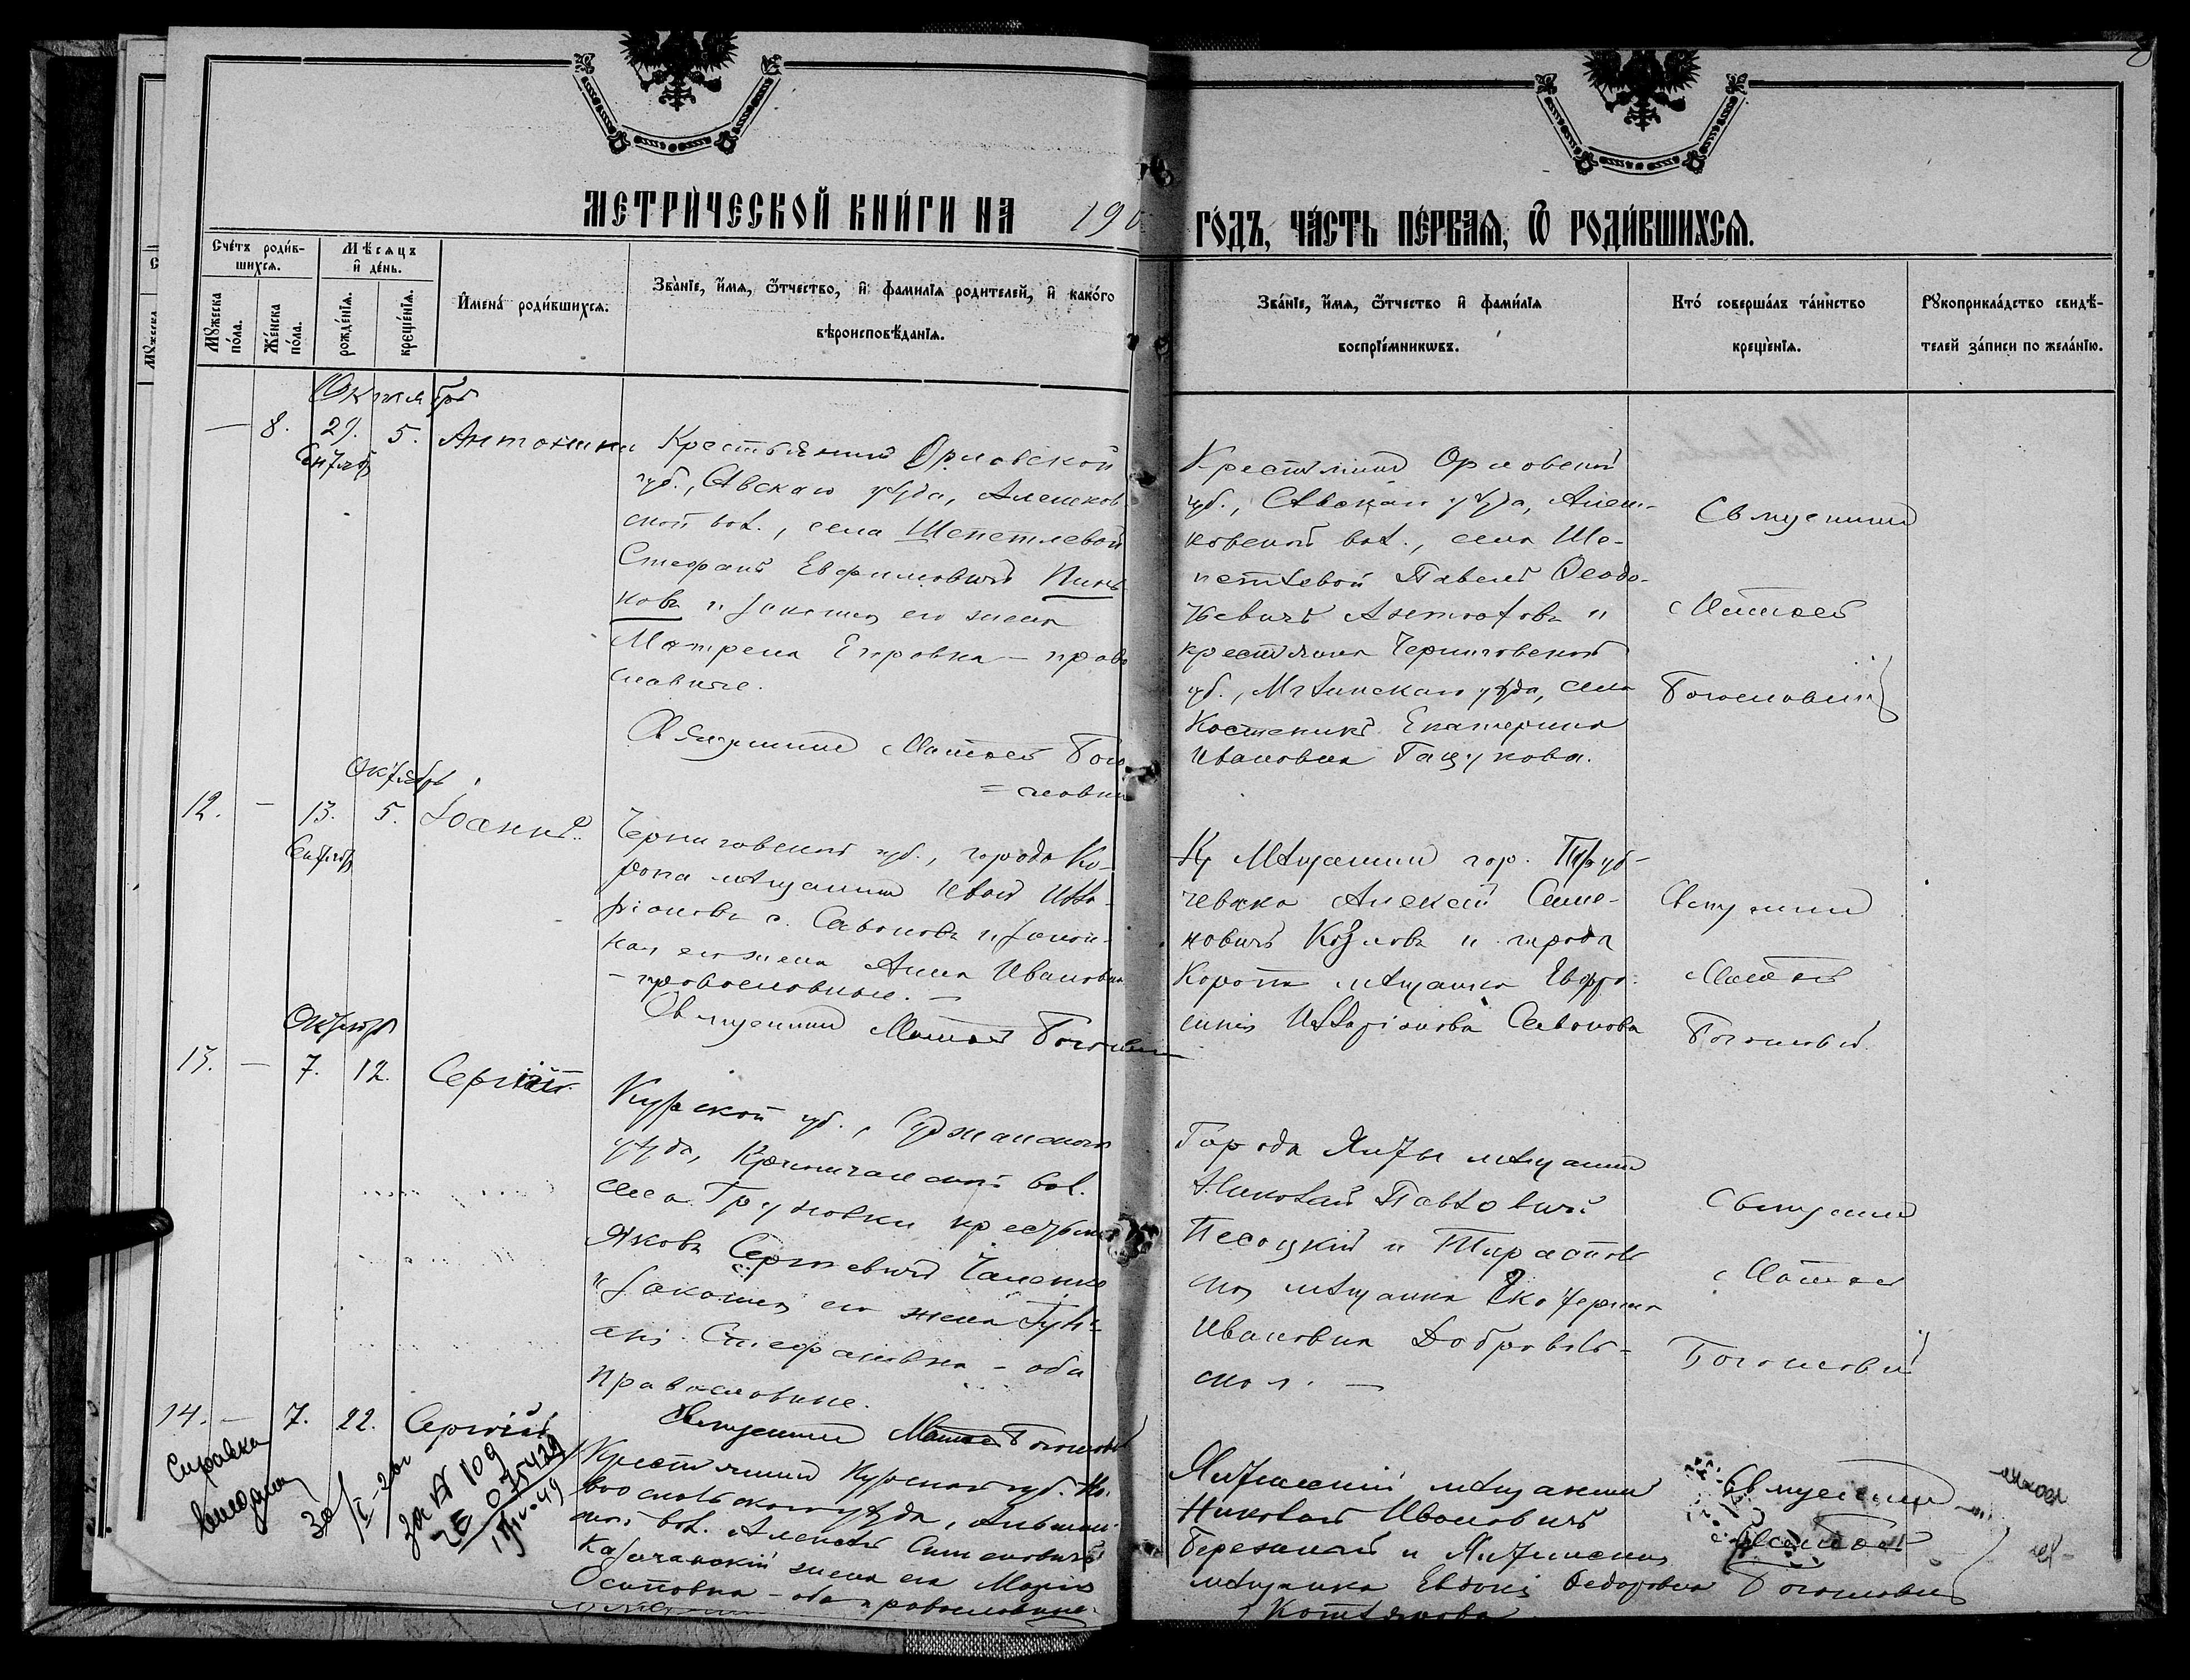 МЕТРИЧЕСКОЙ КНИГИ НА 190
ГОДЪ, ЧАСТЬ ПЕРВАЯ, Ѡ РОДИВШИХСЯ.
Счетъ родив-
шихся.
Мѣсяцъ
и день.
Мужеска
пола.
Женска
пола.
рожденія.
крещенія.
Имена родившихся.
Званіе, имя, ѿтчество, и фамилія родителей, и какого
вѣроисповѣданія.
Званіе, имя, ѿтчество и фамилія
воспріемниковъ.
Кто совершалъ таинство
крещенія.
Рукоприкладство свидѣ-
телей записи по желанію.
Октябрь
— 8. 29. 5. Антонина
Сентябр
Крестьянинъ Орловской
губ., Сѣвскаго уѣзда, Алешков-
ской вол., села Шепетлевой
Стефанъ Евфимовичъ Пинь-
ковъ и законная его жена
Матрена Егоровна — право
славные.
Священникъ Матѳей Бого
= словскій
Крестьянинъ Орловской
губ., Сѣвскаго уѣзда, Алеш-
ковской вол., села Ше-
петлевой Павелъ Ѳеодо-
и
крестьянка Черниговской
губ., Мглинскаго уѣзда, села
Костеничъ Екатерина
Ивановна
Священникъ
Матѳей
Богословскій
Октябрь
12. — 13. 5. Іоаннъ.
Сентябр
Черниговской губ., города Ко-
ропа мѣщанинъ Иванъ Илла-
ріоновъ Савоновъ и закон-
ная его жена Анна Ивановна
— православные. —
Священникъ Матѳей Богословскій
Кр Мѣщанинъ гор. Труб-
чевска Алексѣй Семе-
новичъ Козловъ и города
Коропа мѣщанка Евфро-
синія Илларіонова Савонова
Священникъ
Матѳей
Богословскій.
Октябрь
13. — 7. 12. Сергій.
Курской губ., Суджанскаго
уѣзда, вол.
села Груновки крестьянинъ
Яковъ Сергѣевичъ
и законная его жена Іулі-
анія Стефановна — оба
православные.
Священникъ Матѳей Богословскій
Города Ялты мѣщанинъ
Николай Павловичъ
Песоцкій и Тираспольс
ная мѣщанка Екатерина
Ивановна Добровль-
ская. —
Священникъ
Матѳей
Богословскій
14. — 7. 22. Сергій
Крестьянинъ Курской губ. Но-
вооскольскаго уѣзда,
вол. Алексѣй Симеоновичъ
Казачанскій жена его Марія
Осиповна — оба православные.
Ялтинскій мѣщанинъ
Николай Ивановичъ
Березкинъ и Ялтинская
мѣщанка Евдокія Ѳедоровна
Котлярова
Священникъ
Матѳей
Богословскій
Справка
выдана
за № 109
075429